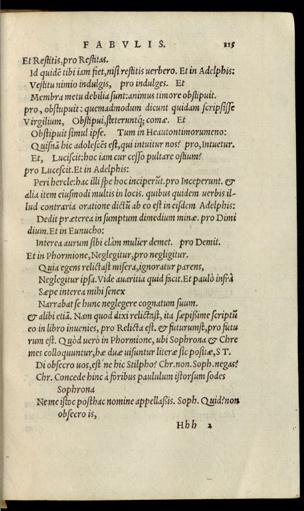 FABVLIS. 215
Et Restitis, pro Restitas.
Id quidē tibi iam fiet, nisi restitis uerbero. Et in Adelphis:
Vestitu nimio indulgis, pro indulges. Et
Membra metu debilia sunt: animus timore obstipuit.
pro, obstupuit: quemadmodum dicunt quidam scripsisse
Virgilium, Obstipui, steteruntq́; comæ. Et
Obstipuit simul ipse. Tum in Heautontimorumeno:
Quisnā hic adolescēs est, qui intuitur nos? pro, Intuetur.
Et, Luciscit: hoc iam cur cesso pultare ostium?
pro Lucescit. Et in Adelphis:
Peri hercle: hac illi spe hoc inciperūt. pro Inceperunt. &
alia item eiusmodi multis in locis. quibus quidem uerbis il-
lud contraria oratione dictū ab eo est in eisdem Adelphis:
Dedit præterea in sumptum dimedium minæ. pro Dimi
dium. Et in Eunucho:
Interea aurum sibi clàm mulier demet. pro Demit.
Et in Phormione, Neglegitur, pro negligitur.
Quia egens relictast misera, ignoratur parens,
Neglegitur ipsa. Vide auaritia quid facit. Et paulò infrà
Sæpe interea mihi senex
Narrabat se hunc neglegere cognatum suum.
& alibi etiā. Nam quod dixi relictast, ita sæpissime scriptū
eo in libro inuenies, pro Relicta est. & futurumst, pro futu
rum est. Quòd uerò in Phormione, ubi Sophrona & Chre
mes colloquuntur, hæ duæ uisuntur literæ sic positæ, S T.
Di obsecro uos, est'ne hic Stilpho? Chr. non. Soph. negas?
Chr. Concede hinc à foribus paululum istorsum sodes
Sophrona
Ne me istoc posthac nomine appellassis. Soph. Quid? non
obsecro is,
Hhh 2